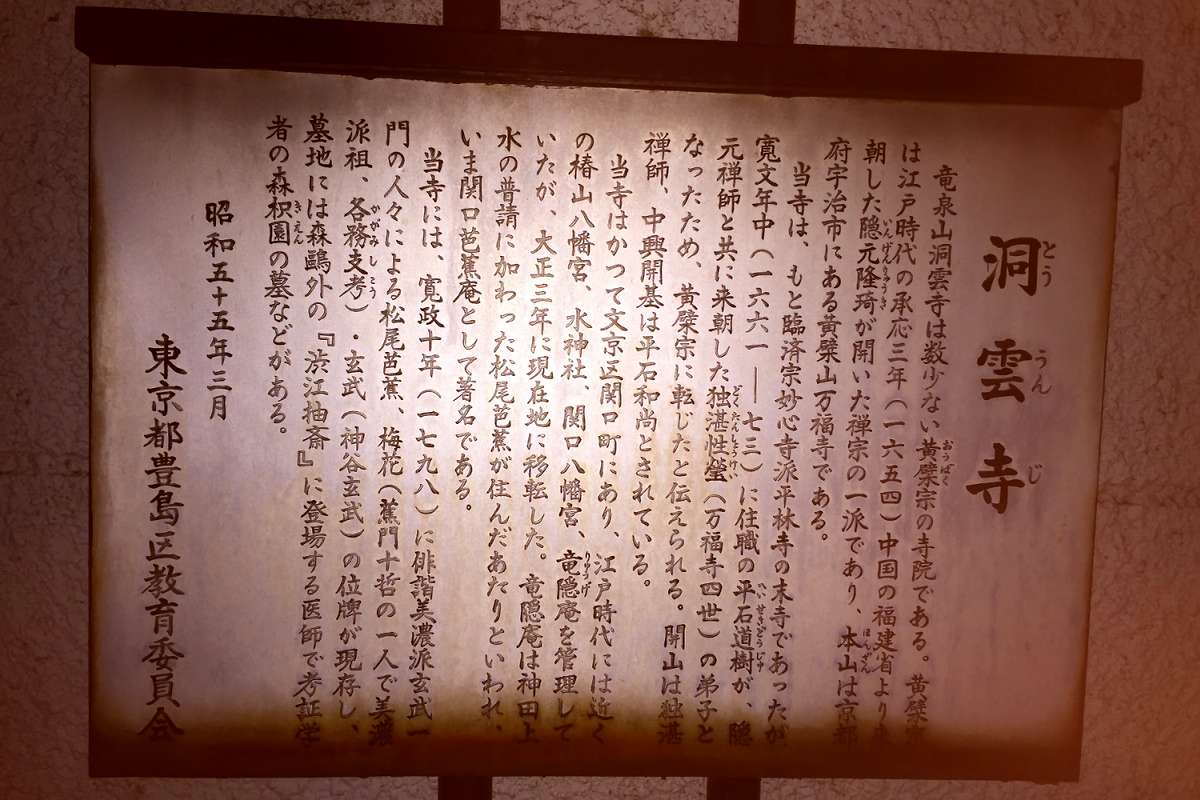 洞雲寺
とううんじ
竜泉山洞雲寺は数少ない黄檗宗の寺院である。黄檗宗
おうばく
は江戸時代の承応三年(一六五四)中国の福建省より来
朝した隠元隆琦が開いた禅宗の一派であり、本山は京都
いんげんりゅうき
ほんざん
府宇治市にある黄檗山万福寺である。
当寺は、もと臨済宗妙心寺派平林寺の末寺であったが
寛文年中(一六六一―七三)に住職の平石道樹が、隠
へいせきどうじゅ
元禅師と共に来朝した独湛性瑩(万福寺四世)の弟子と
どくたんしょうけい
なったため、黄檗宗に転じたと伝えられる。開山は独湛
禅師、中興開基は平石和尚とされている。
当寺はかつて文京区関口町にあり、江戸時代には近く
の椿山八幡宮、水神社、関口八幡宮、竜隠庵を管理して
りゅうげ
いたが、大正三年に現在地に移転した。竜隠庵は神田上
水の普請に加わった松尾芭蕉が住んだあたりといわれ、
いま関口芭蕉庵として著名である。
当寺には、寛政十年(一七九八)に俳諧美濃派玄武一
門の人々による松尾芭蕉、梅花(蕉門十哲の一人で美濃
派祖、各務支考)・玄武(神谷玄武)の位牌が現存し、
かがみしこう
墓地には森鷗外の『渋江抽斎』に登場する医師で考証学
者の森枳園の墓などがある。
きえん
昭和五十五年三月
東京都豊島区教育委員会